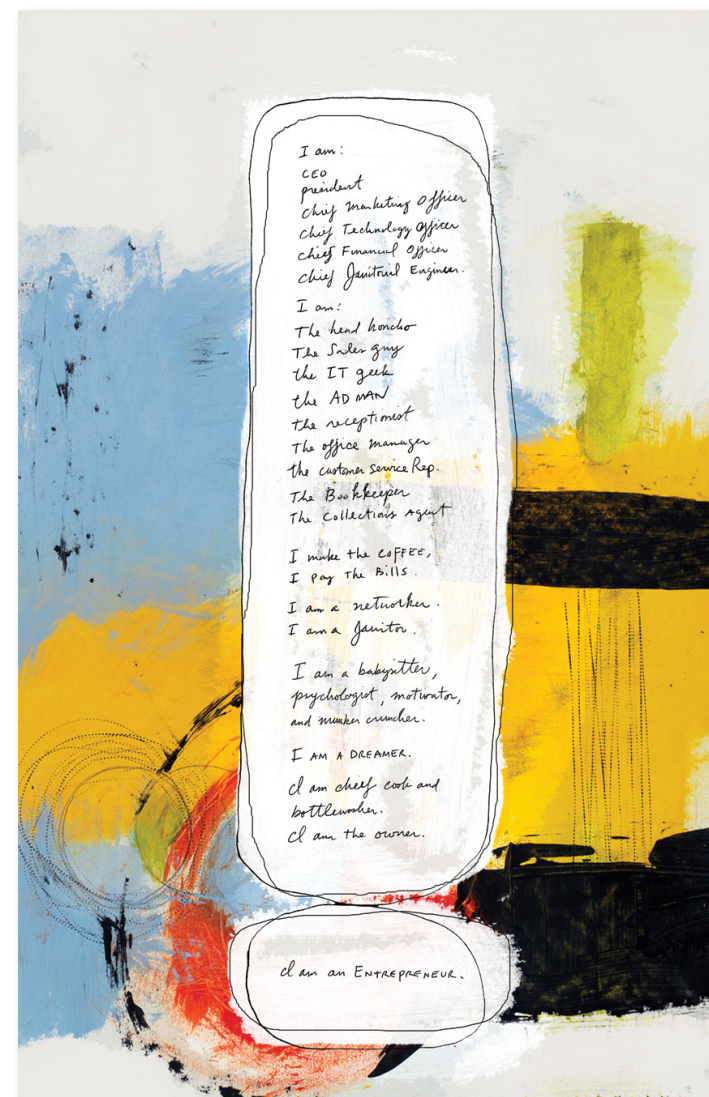 I am:
CEO
president
chief Marketing Officer
chief Technology Officer
chief Financial Officer
chief Janitorial Engineer.
I am:
The head honcho
The Sales guy
the IT geek
the AD MAN
the receptionist
The office manager
the customer service Rep.
The Bookkeeper
The Collections Agent
I make the COFFEE,
I pay The Bills.
I am a networker.
I am a Janitor.
I am a babysitter,
psychologist, motivator,
and number cruncher.
I AM A DREAMER.
I am chief cook and
bottlewasher.
I am the owner.
I am an ENTREPRENEUR.